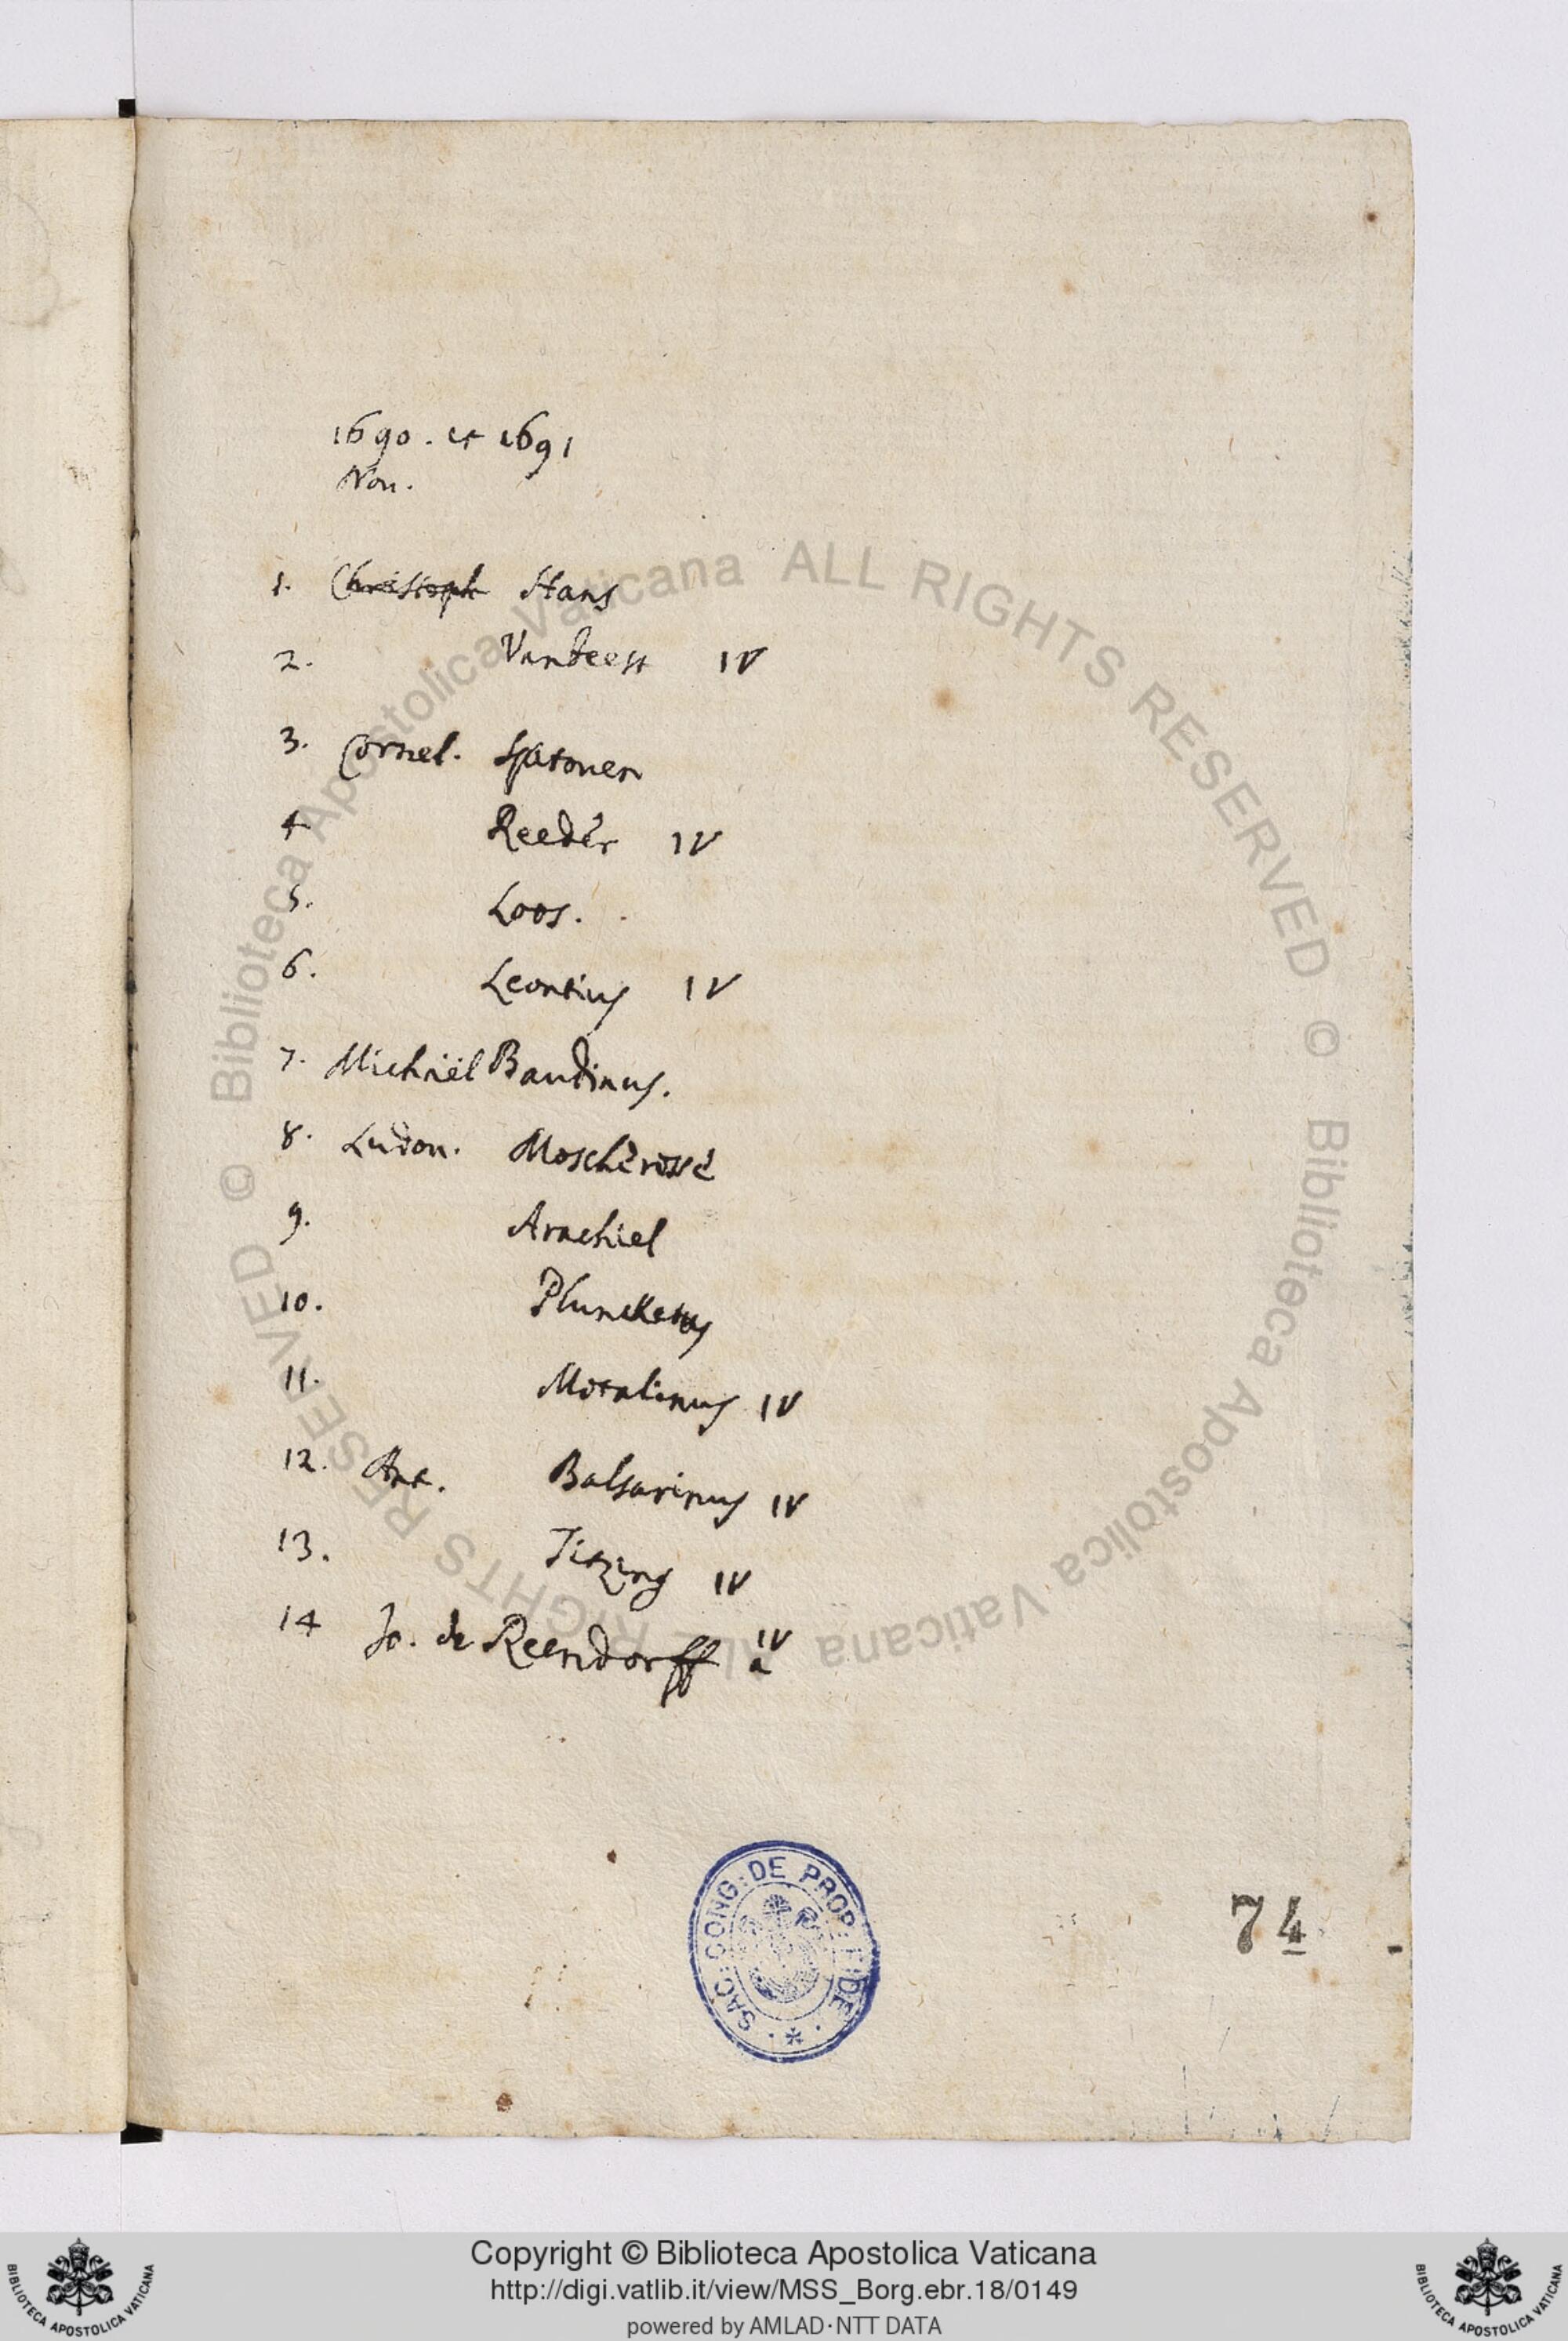 1690. et 1691
Nov.
1. Christoph Hans
2. Vanbeest IV
3. Cornel. Spatoven
4 Reeder IV
5. Loos.
6. Leontius IV
7. Michael Baudinus.
8. Ludov. Moscherosse
9. Arachiel
10. Pluncketus
11. Moralinus IV
12. Ant. Balsarinus IV
13. Titzing IV
14 Jo. de Reendorff IV
a
SAC: CONG: DE PROP: FIDE
74
© Biblioteca Apostolica Vaticana ALL RIGHTS RESERVED © Biblioteca Apostolica Vaticana ALL RIGHTS RESERVED
Copyright © Biblioteca Apostolica Vaticana
http://digi.vatlib.it/view/MSS_Borg.ebr.18/0149
powered by AMLAD·NTT DATA
BIBLIOTECA APOSTOLICA VATICANA
BIBLIOTECA APOSTOLICA VATICANA